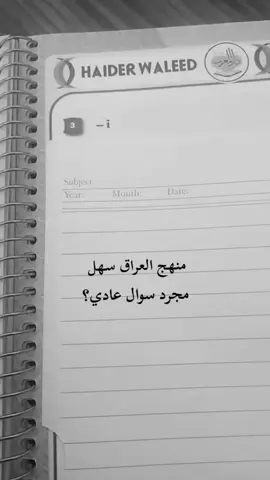 HAIDER WALEED
3 – i
Subject
Year: Month: Date:
منهج العراق سهل
مجرد سوال عادي؟